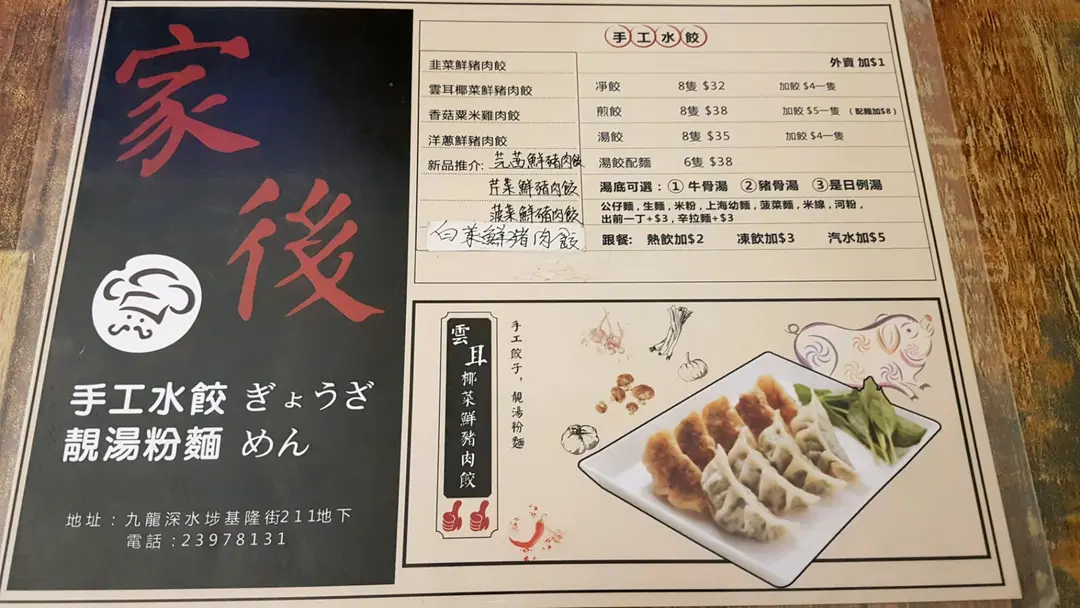 家後
手工水餃 ぎょうざ
靚湯粉麵 めん
地址：九龍深水埗基隆街211地下
電話：23978131
手工水餃
外賣 加$1
韭菜鮮豬肉餃
雲耳椰菜鮮豬肉餃
香菇粟米雞肉餃
洋蔥鮮豬肉餃
新品推介: 芫茜鮮豬肉餃
芹菜鮮豬肉餃
菠菜鮮豬肉餃
白菜鮮猪肉餃
淨餃 8隻 $32 加餃 $4一隻
煎餃 8隻 $38 加餃 $5一隻 (配麵加$8)
湯餃 8隻 $35 加餃 $4一隻
湯餃配麵 6隻 $38
湯底可選：① 牛骨湯 ②豬骨湯 ③是日例湯
公仔麵 , 生麵 , 米粉 , 上海幼麵 , 菠菜麵 , 米線 , 河粉 ,
出前一丁+$3 , 辛拉麵+$3
跟餐: 熱飲加$2 凍飲加$3 汽水加$5
雲耳椰菜鮮豬肉餃
手工餃子，靚湯粉麵